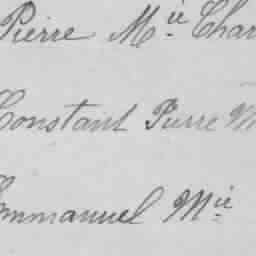 Pierre Mie Char
Constant Pierre M
Emmanuel Mie